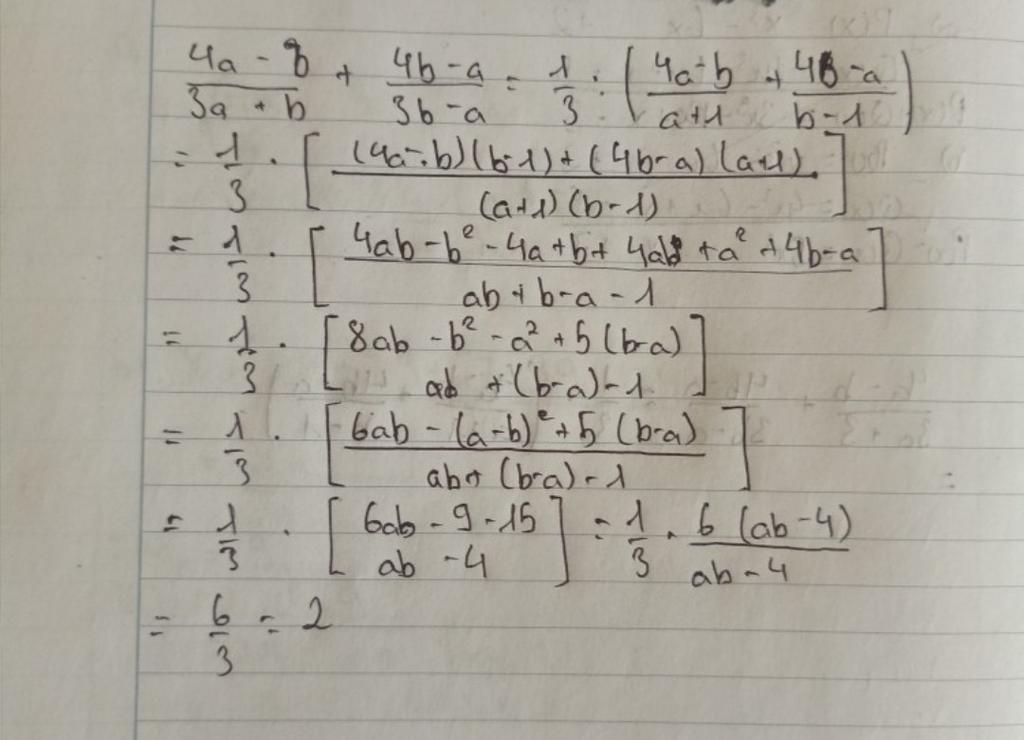 (4a - b)/(3a + b) + (4b - a)/(3b - a) = 1/3 : ((4a - b)/(a+1) + (4b - a)/(b - 1))
= 1/3 . [((4a - b)(b-1) + (4b-a)(a+1))/((a+1)(b-1))]
= 1/3 . [(4ab - b² - 4a + b + 4ab + a² + 4b - a)/(ab + b - a - 1)]
= 1/3 . [(8ab - b² - a² + 5(b-a))/(ab + (b-a) - 1)]
= 1/3 . [(6ab - (a-b)² + 5(b-a))/(ab + (b-a) - 1)]
= 1/3 . [(6ab - 9 - 15)/(ab - 4)] = 1/3 . 6(ab - 4)/(ab - 4)
= 6/3 = 2